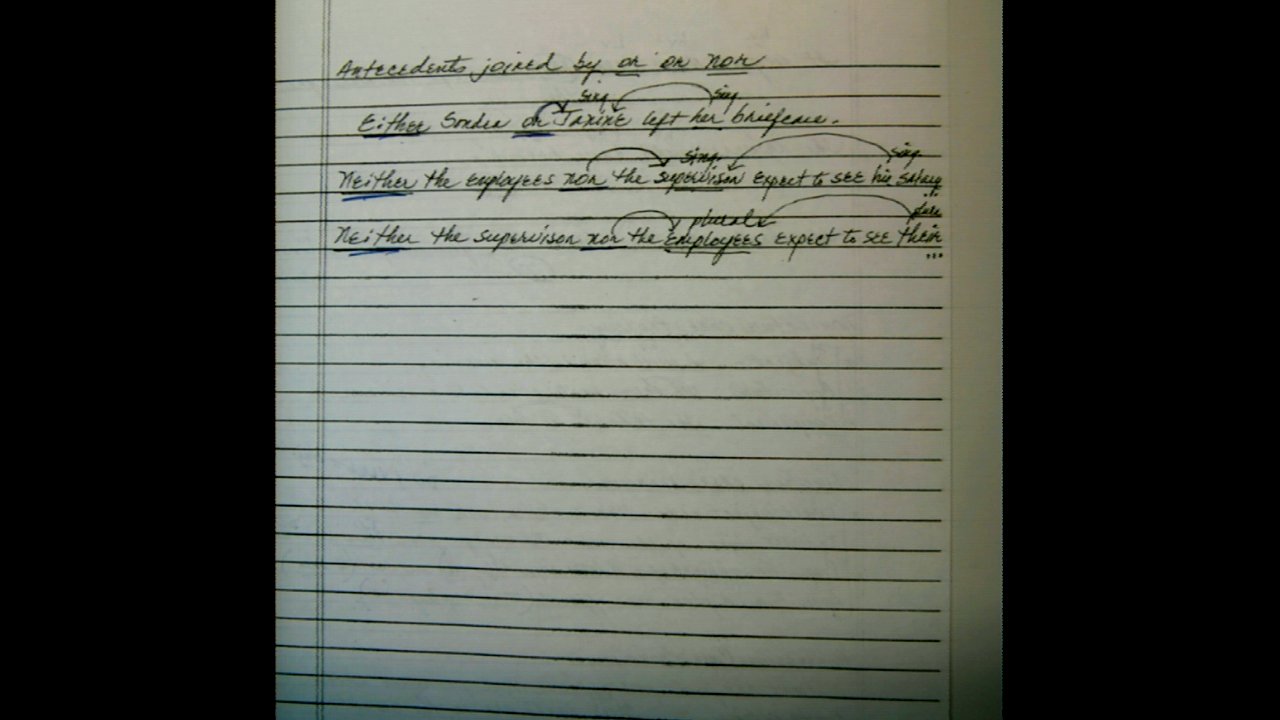 Antecedents joined by or or nor
sing sing
Either Sondra or Janine left her briefcase.
sing. sing.
Neither the employees nor the supervisor expect to see his salary
plural plu.
Neither the supervisor nor the employees expect to see their
...